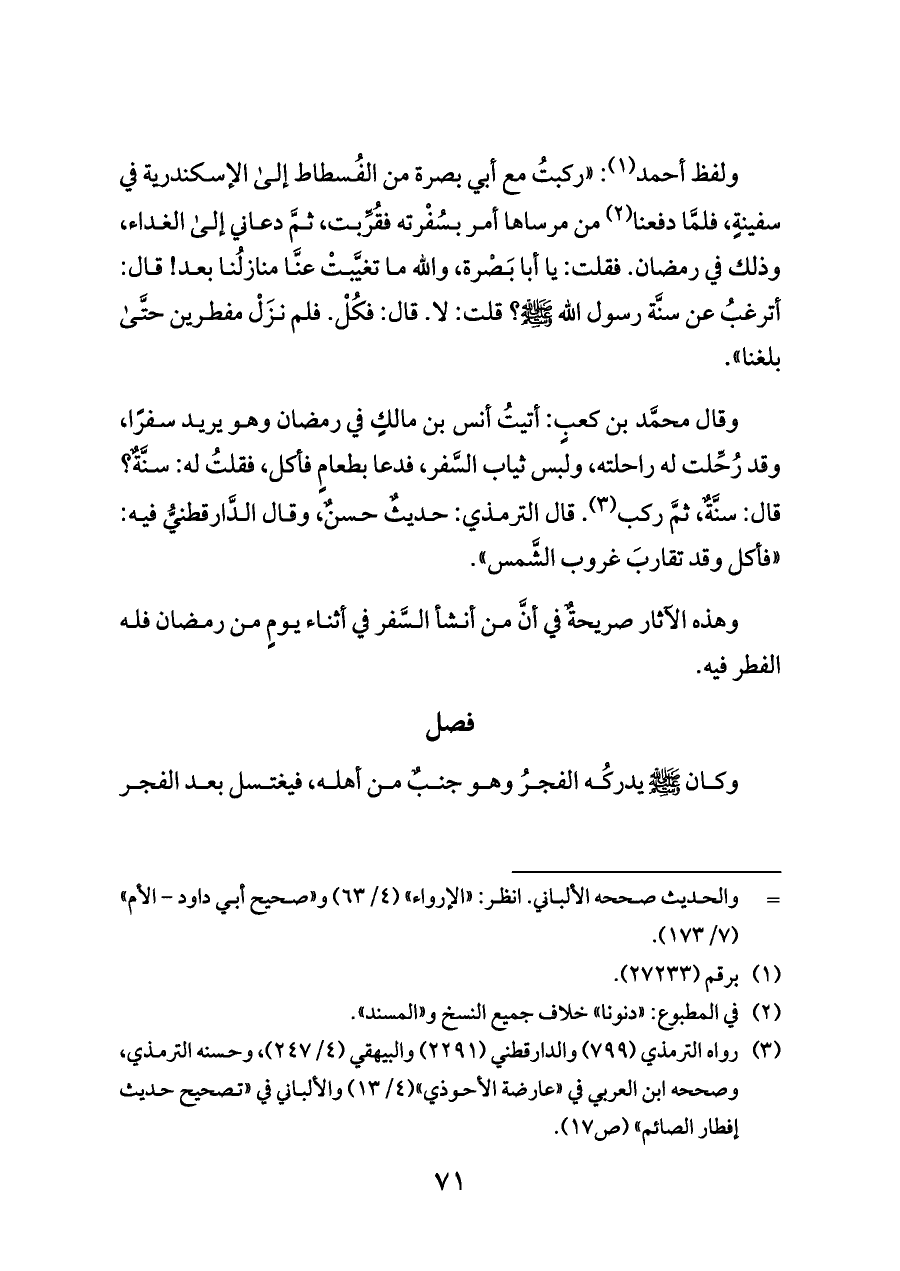 ولفظ أحمد(١): «ركبتُ مع أبي بصرة من الفُسطاط إلىٰ الإسكندرية في
سفينةٍ، فلمَّا دفعنا(٢) من مرساها أمر بسُفْرته فقُرِّبت، ثمَّ دعاني إلىٰ الغداء،
وذلك في رمضان. فقلت: يا أبا بَصْرة، والله ما تغيَّبتْ عنَّا منازلُنا بعد! قال:
أترغبُ عن سنَّة رسول الله ﷺ؟ قلت: لا. قال: فكُلْ. فلم نزَلْ مفطرين حتَّىٰ
بلغنا».
وقال محمَّد بن كعبٍ: أتيتُ أنس بن مالكٍ في رمضان وهو يريد سفرًا،
وقد رُحِّلت له راحلته، ولبس ثياب السَّفر، فدعا بطعامٍ فأكل، فقلتُ له: سنَّةٌ؟
قال: سنَّةٌ، ثمَّ ركب(٣). قال الترمذي: حديثٌ حسنٌ، وقال الدَّارقطنيُّ فيه:
«فأكل وقد تقاربَ غروب الشَّمس».
وهذه الآثار صريحةٌ في أنَّ من أنشأ السَّفر في أثناء يومٍ من رمضان فله
الفطر فيه.
فصل
وكان ﷺ يدركُه الفجرُ وهو جنبٌ من أهله، فيغتسل بعد الفجر
= والحديث صححه الألباني. انظر: «الإرواء» (٤/ ٦٣) و«صحيح أبي داود – الأم»
(٧/ ١٧٣).
(١) برقم (٢٧٢٣٣).
(٢) في المطبوع: «دنونا» خلاف جميع النسخ و«المسند».
(٣) رواه الترمذي (٧٩٩) والدارقطني (٢٢٩١) والبيهقي (٤/ ٢٤٧)، وحسنه الترمذي،
وصححه ابن العربي في «عارضة الأحوذي»(٤/ ١٣) والألباني في «تصحيح حديث
إفطار الصائم» (ص١٧).
٧١